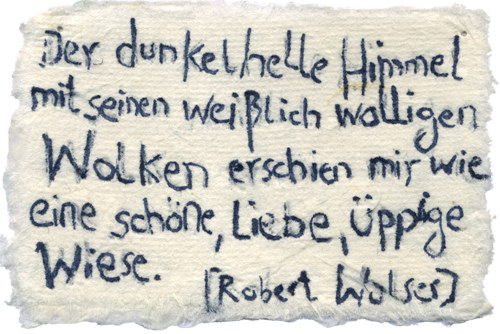 Der dunkelhelle Himmel
mit seinen weißlich wolligen
Wolken erschien mir wie
eine schöne, Liebe, üppige
Wiese.
[Robert Walser]